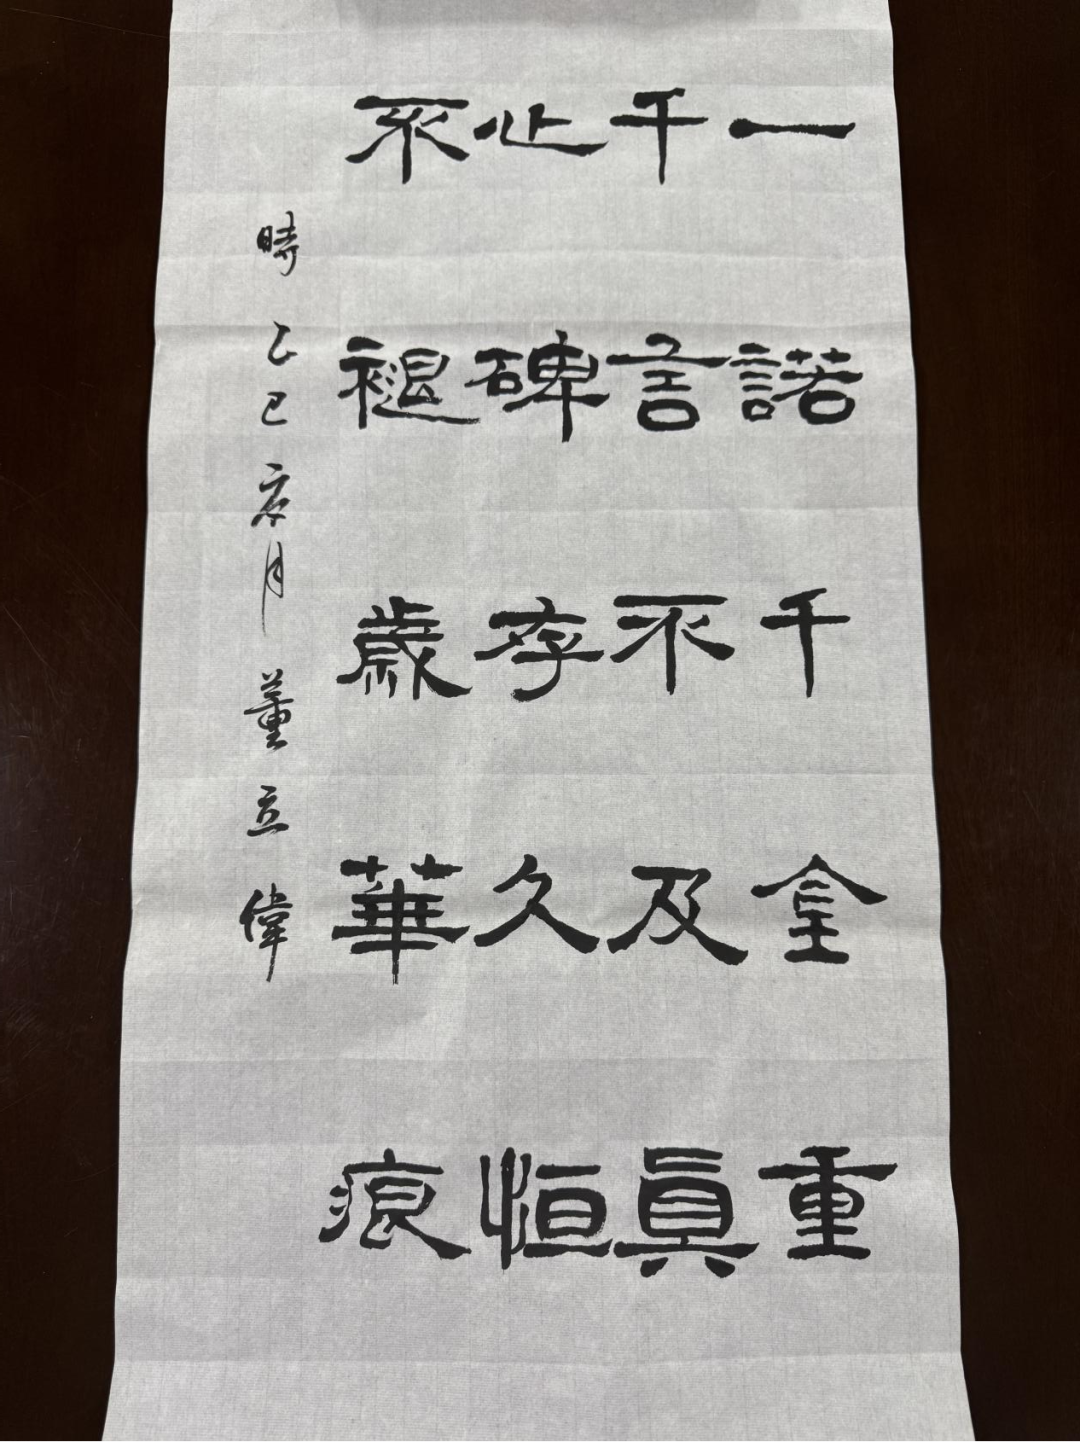 一諾千金重
千言不及眞
心碑存久恒
不褪歳華痕
時乙巳亥月董立偉